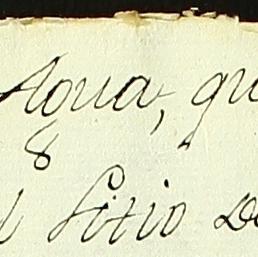 Agua, qu
l Sitio De